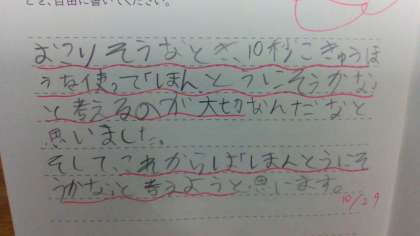 とを、自由に書いてください。
おこりそうなとき、10秒こきゅうほ
うを使って「ほんとうにそうかな」
と考えるのが大切なんだなと
思いました。
そして、これからは「ほんとうにそ
うかな」と考えようと思います。
10/29